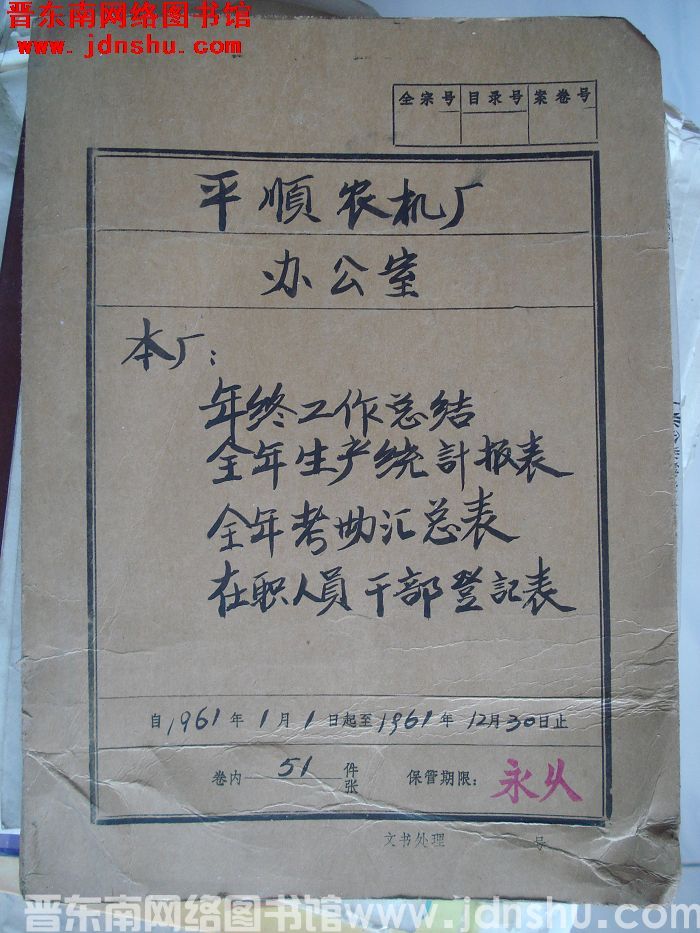 晋东南网络图书馆
www.jdnshu.com
全宗号 目录号 案卷号
平順农机厂
办公室
本厂：
年终工作总结
全年生产统計报表
全年考勤汇总表
在职人员干部登記表
自1961年1月1日起至1961年12月30日止
卷内 51 件张 保管期限：永久
文书处理 号
晋东南网络图书馆www.jdnshu.com